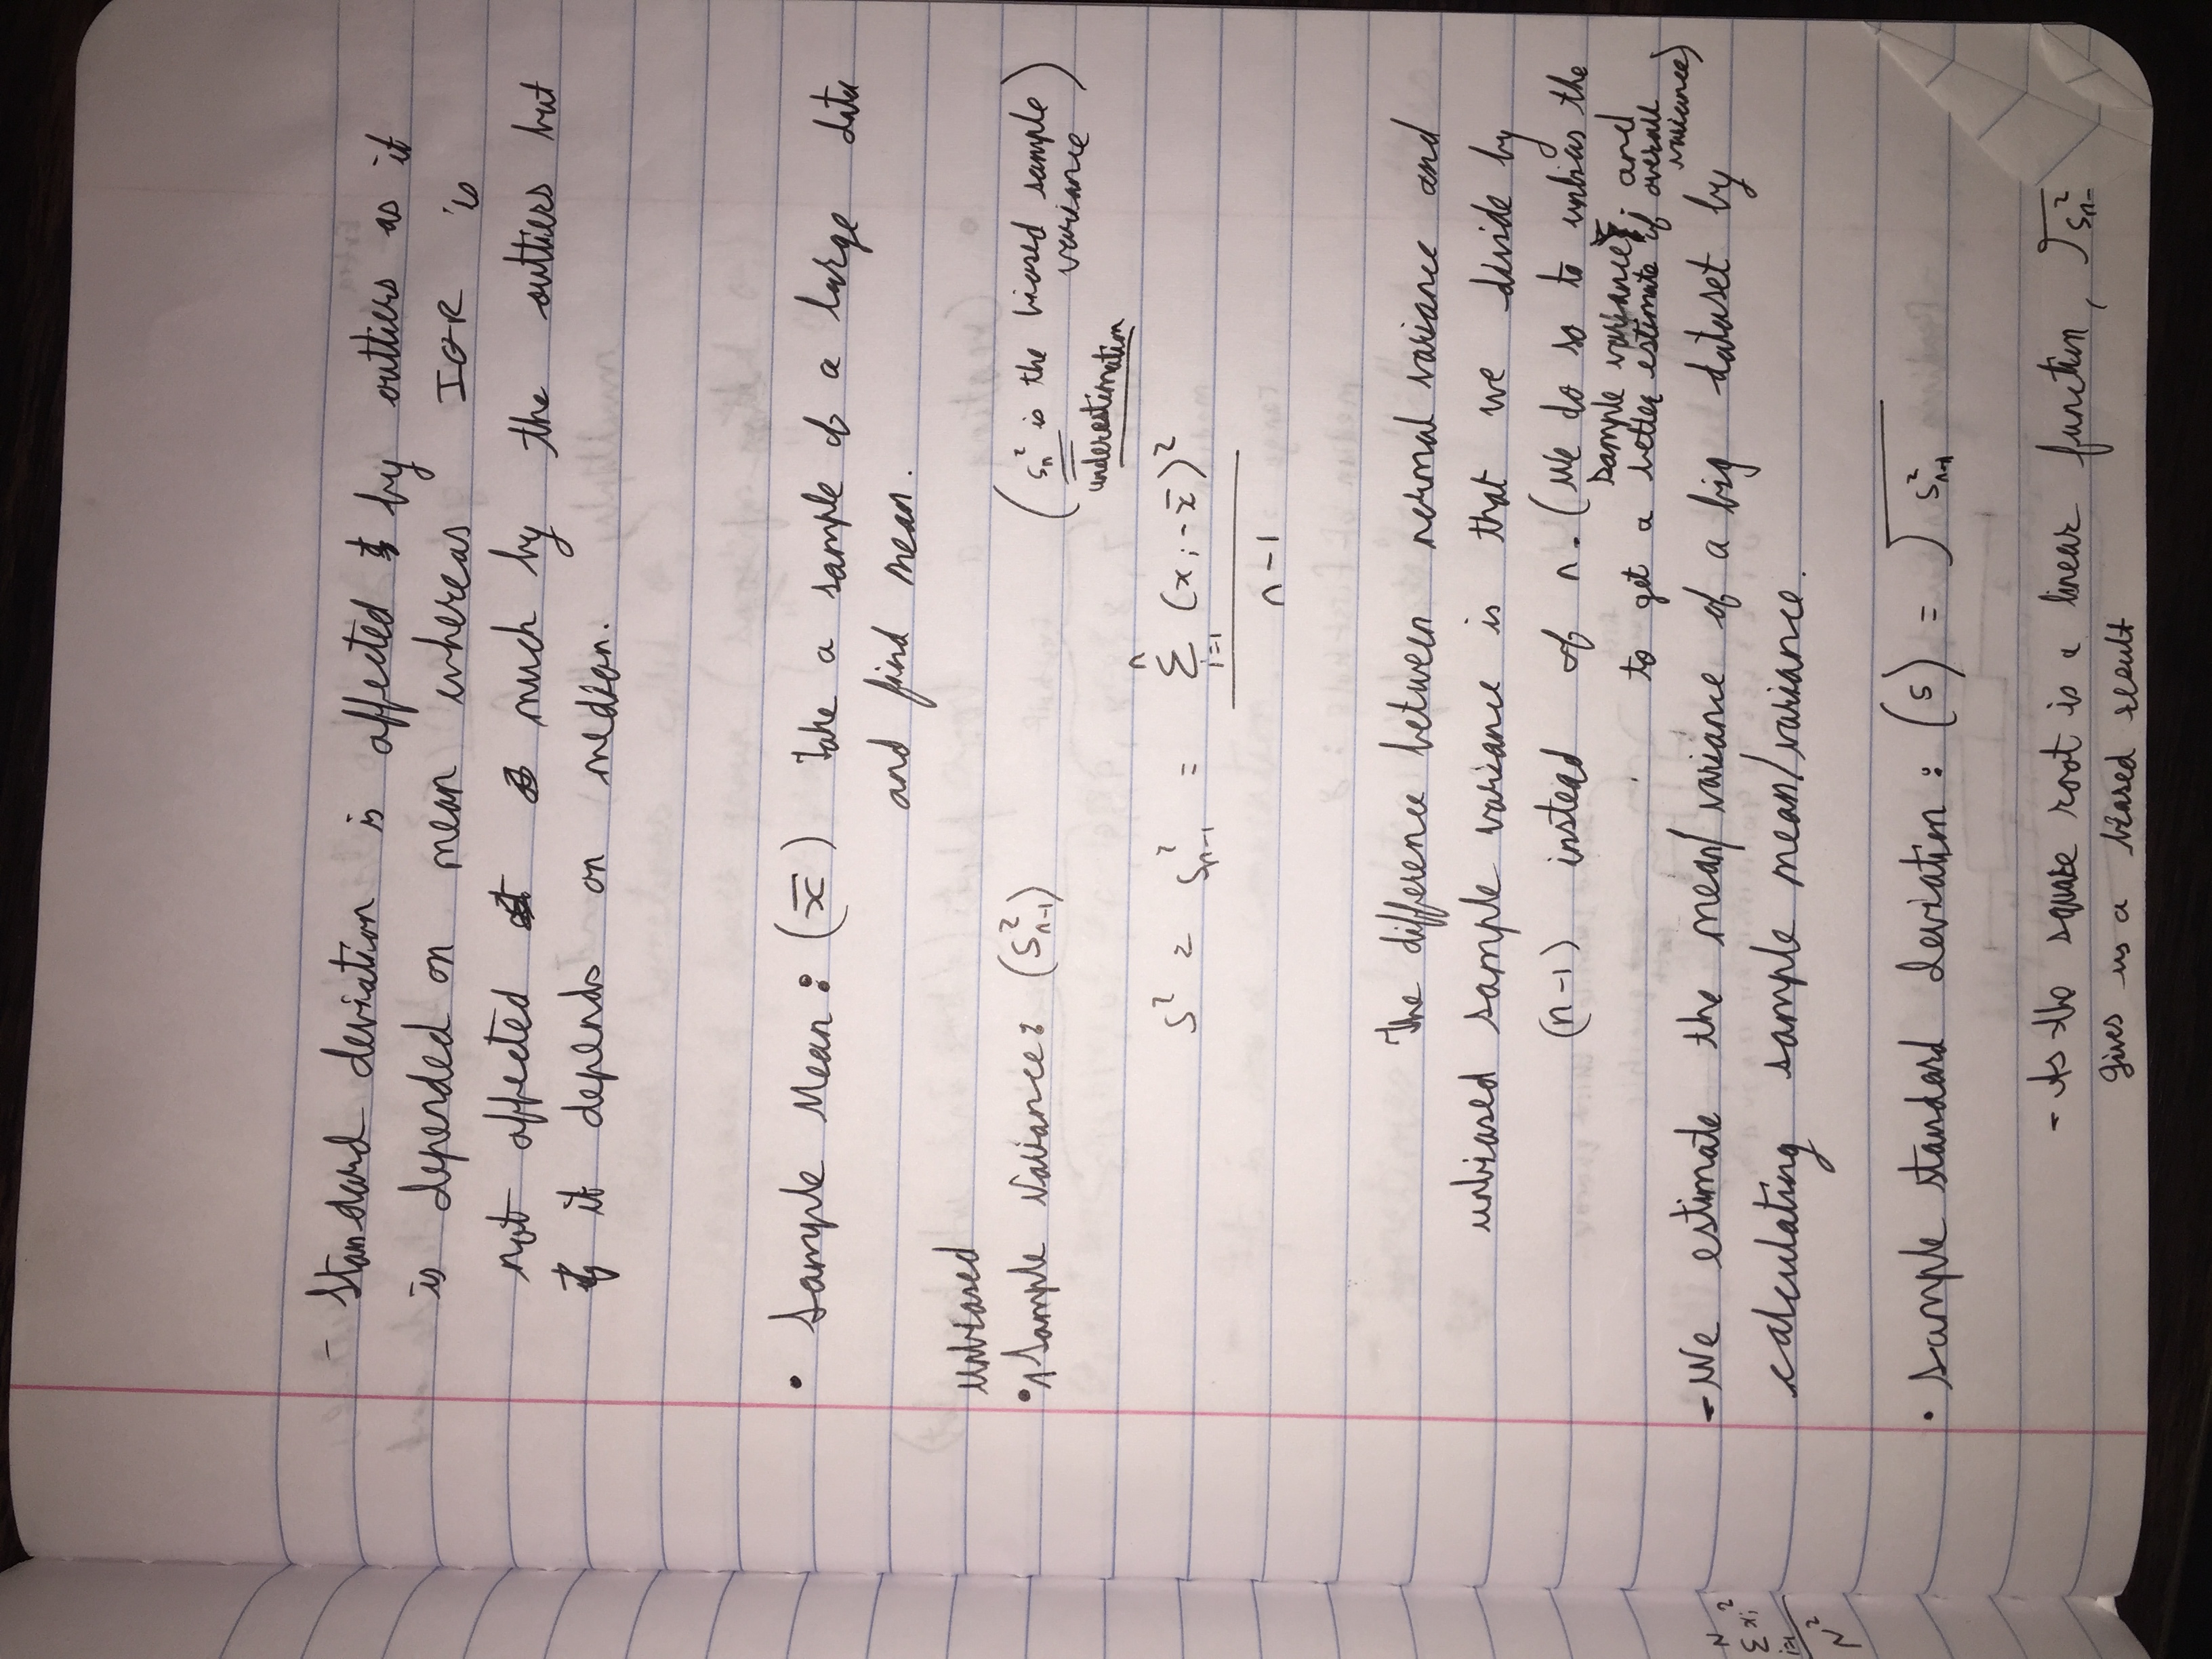 - Standard deviation is affected by outliers as it
is depended on mean whereas IQR is
not affected much by the outliers but
it depends on median.
• Sample Mean: (x̄) Take a sample of a large data
and find mean.
unbiased
• ^ Sample Variance: (S²ₙ₋₁)
(Sₙ² is the biased sample
variance)
underestimation
S² = S²ₙ₋₁ = Σⁿᵢ₌₁ (xᵢ - x̄)²
n-1
The difference between normal variance and
unbiased sample variance is that we divide by
(n-1) instead of n. (We do so to unbias the
sample variance, and
to get a better estimate of overall
variance)
- We estimate the mean/variance of a big dataset by
calculating sample mean/variance.
N
Σ xᵢ²
i=1
N²
• Sample standard deviation: (s) = √S²ₙ₋₁
- As the square root is a linear function, √S²ₙ₋
gives us a biased result